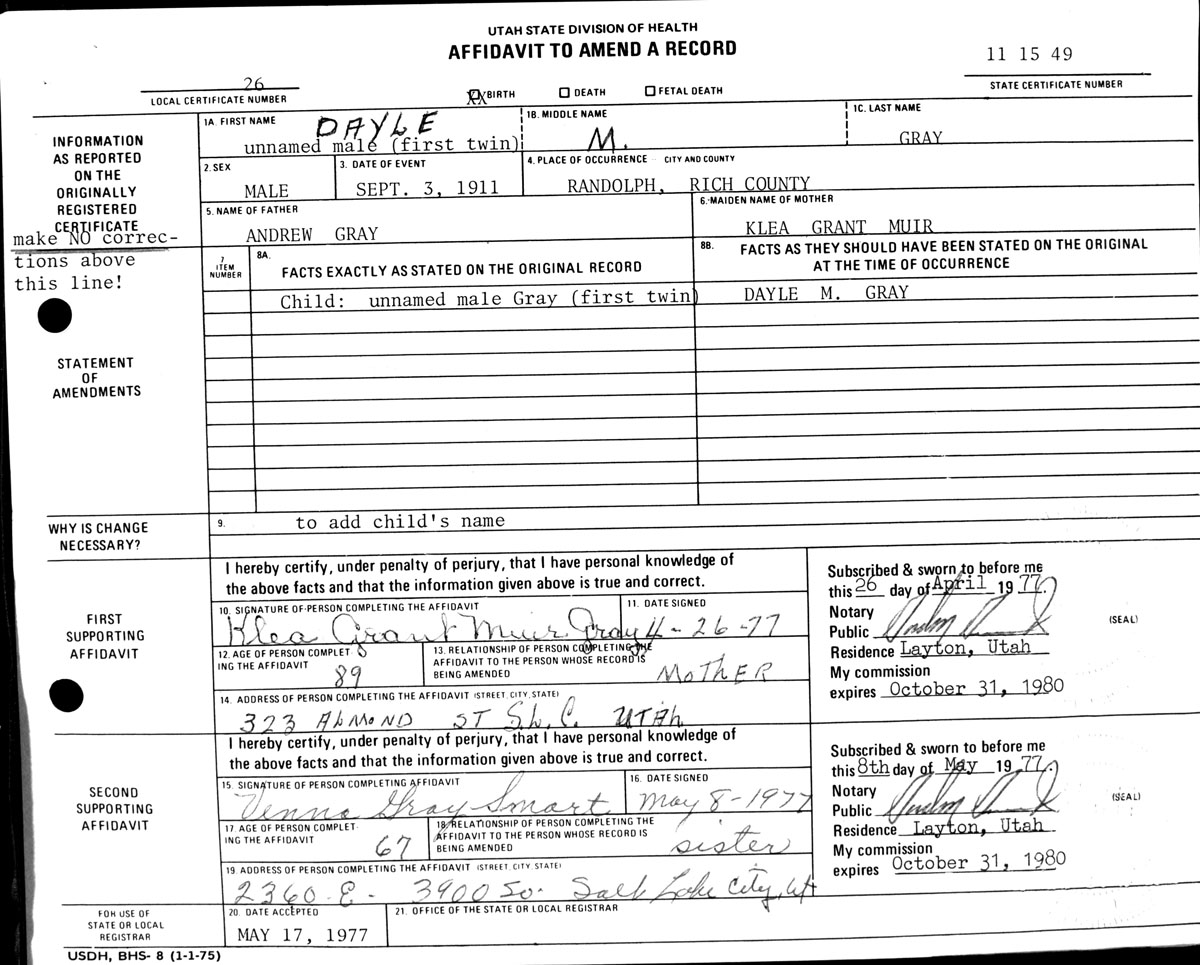 UTAH STATE DIVISION OF HEALTH
AFFIDAVIT TO AMEND A RECORD
11 15 49
STATE CERTIFICATE NUMBER
26
LOCAL CERTIFICATE NUMBER
XX BIRTH DEATH FETAL DEATH
INFORMATION
AS REPORTED
ON THE
ORIGINALLY
REGISTERED
CERTIFICATE
make NO correc-
tions above
this line!
1A. FIRST NAME
DAYLE
unnamed male (first twin)
1B. MIDDLE NAME
M.
1C. LAST NAME
GRAY
2. SEX
MALE
3. DATE OF EVENT
SEPT. 3, 1911
4. PLACE OF OCCURRENCE - CITY AND COUNTY
RANDOLPH, RICH COUNTY
5. NAME OF FATHER
ANDREW GRAY
6. MAIDEN NAME OF MOTHER
KLEA GRANT MUIR
STATEMENT
OF
AMENDMENTS
7
ITEM
NUMBER
8A.
FACTS EXACTLY AS STATED ON THE ORIGINAL RECORD
8B. FACTS AS THEY SHOULD HAVE BEEN STATED ON THE ORIGINAL
AT THE TIME OF OCCURRENCE
Child: unnamed male Gray (first twin)
DAYLE M. GRAY
WHY IS CHANGE
NECESSARY?
9. to add child's name
FIRST
SUPPORTING
AFFIDAVIT
I hereby certify, under penalty of perjury, that I have personal knowledge of
the above facts and that the information given above is true and correct.
10. SIGNATURE OF PERSON COMPLETING THE AFFIDAVIT
Klea Grant Muir Gray
11. DATE SIGNED
4-26-77
12. AGE OF PERSON COMPLET-
ING THE AFFIDAVIT
89
13. RELATIONSHIP OF PERSON COMPLETING THE
AFFIDAVIT TO THE PERSON WHOSE RECORD IS
BEING AMENDED
MOTHER
14. ADDRESS OF PERSON COMPLETING THE AFFIDAVIT (STREET, CITY, STATE)
323 ALMOND ST S.L.C. UTAH
Subscribed & sworn to before me
this 26 day of April 1977
Notary
Public
Residence Layton, Utah
My commission
expires October 31, 1980
(SEAL)
SECOND
SUPPORTING
AFFIDAVIT
I hereby certify, under penalty of perjury, that I have personal knowledge of
the above facts and that the information given above is true and correct.
15. SIGNATURE OF PERSON COMPLETING AFFIDAVIT
Venna Gray Smart
16. DATE SIGNED
May 8-1977
17. AGE OF PERSON COMPLET-
ING THE AFFIDAVIT
67
18. RELATIONSHIP OF PERSON COMPLETING THE
AFFIDAVIT TO THE PERSON WHOSE RECORD IS
BEING AMENDED
sister
19. ADDRESS OF PERSON COMPLETING THE AFFIDAVIT (STREET, CITY, STATE)
2360 E - 3900 So. Salt Lake City, Ut
Subscribed & sworn to before me
this 8th day of May 1977
Notary
Public
Residence Layton, Utah
My commission
expires October 31, 1980
(SEAL)
FOR USE OF
STATE OR LOCAL
REGISTRAR
20. DATE ACCEPTED
MAY 17, 1977
21. OFFICE OF THE STATE OR LOCAL REGISTRAR
USDH, BHS- 8 (1-1-75)